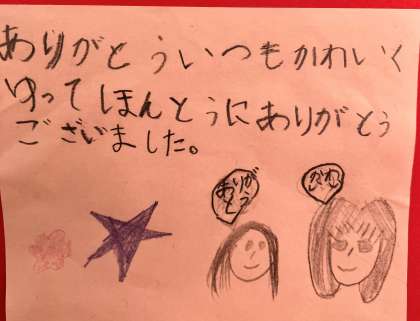 ありがとういつもかわいく
ゆってほんとうにありがとう
ございました。
ありが
とう
かわいい